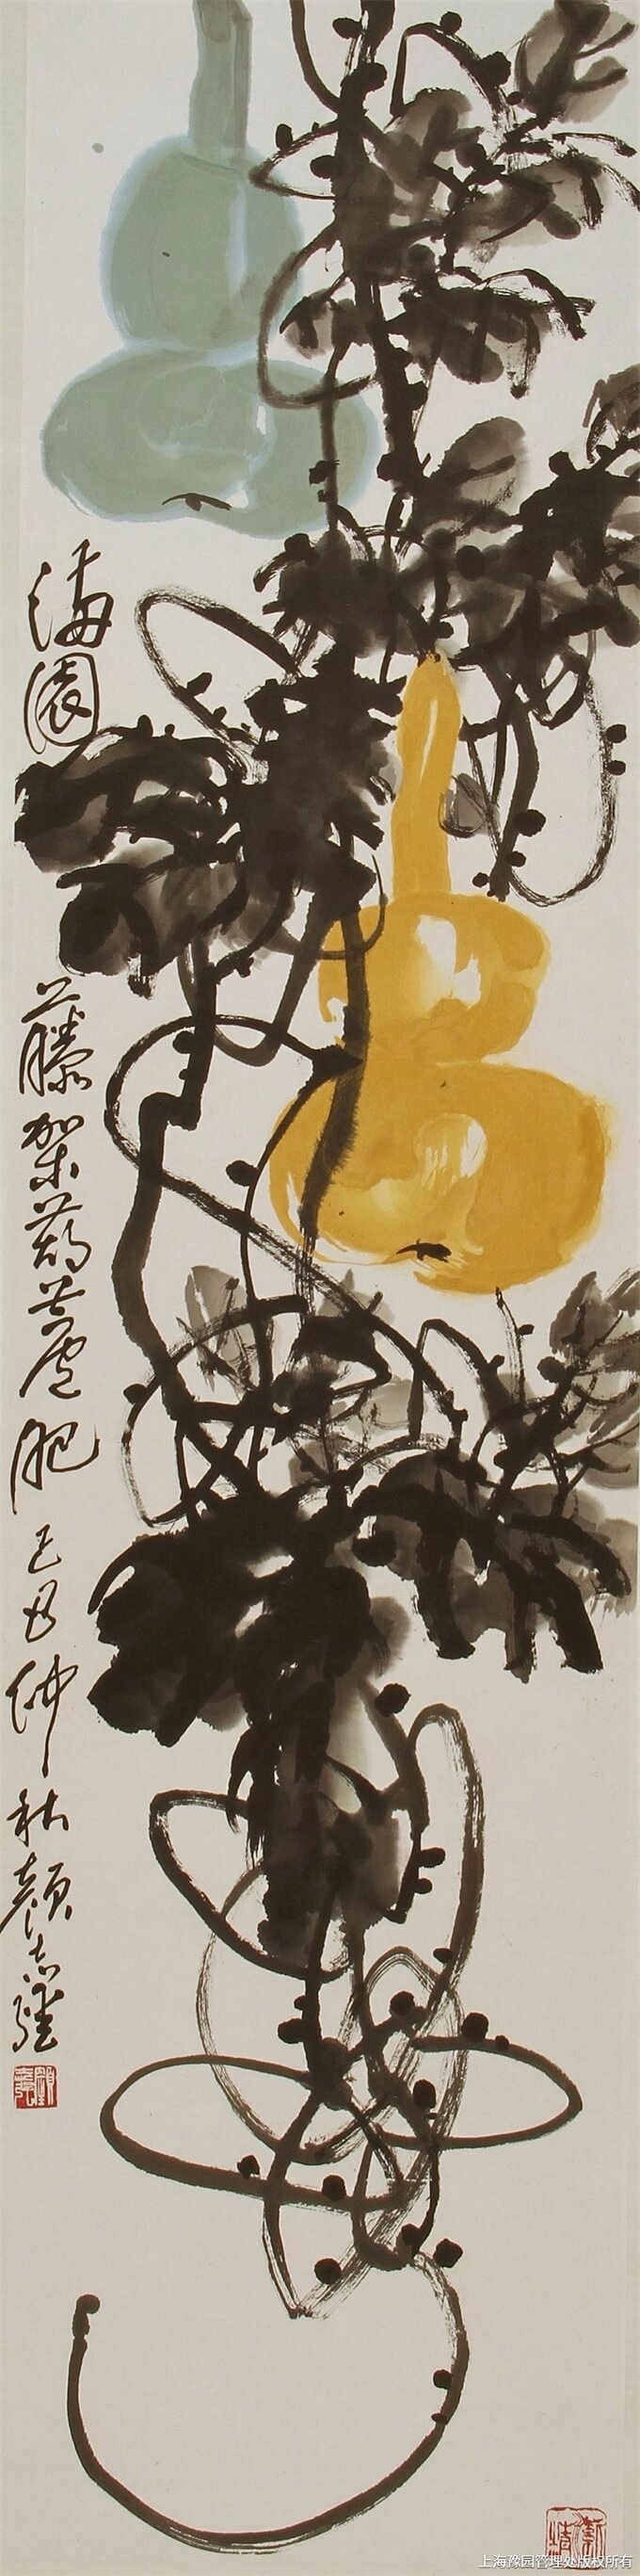 满园藤架葫芦肥己丑仲秋顾志强
上海豫园管理处版权所有